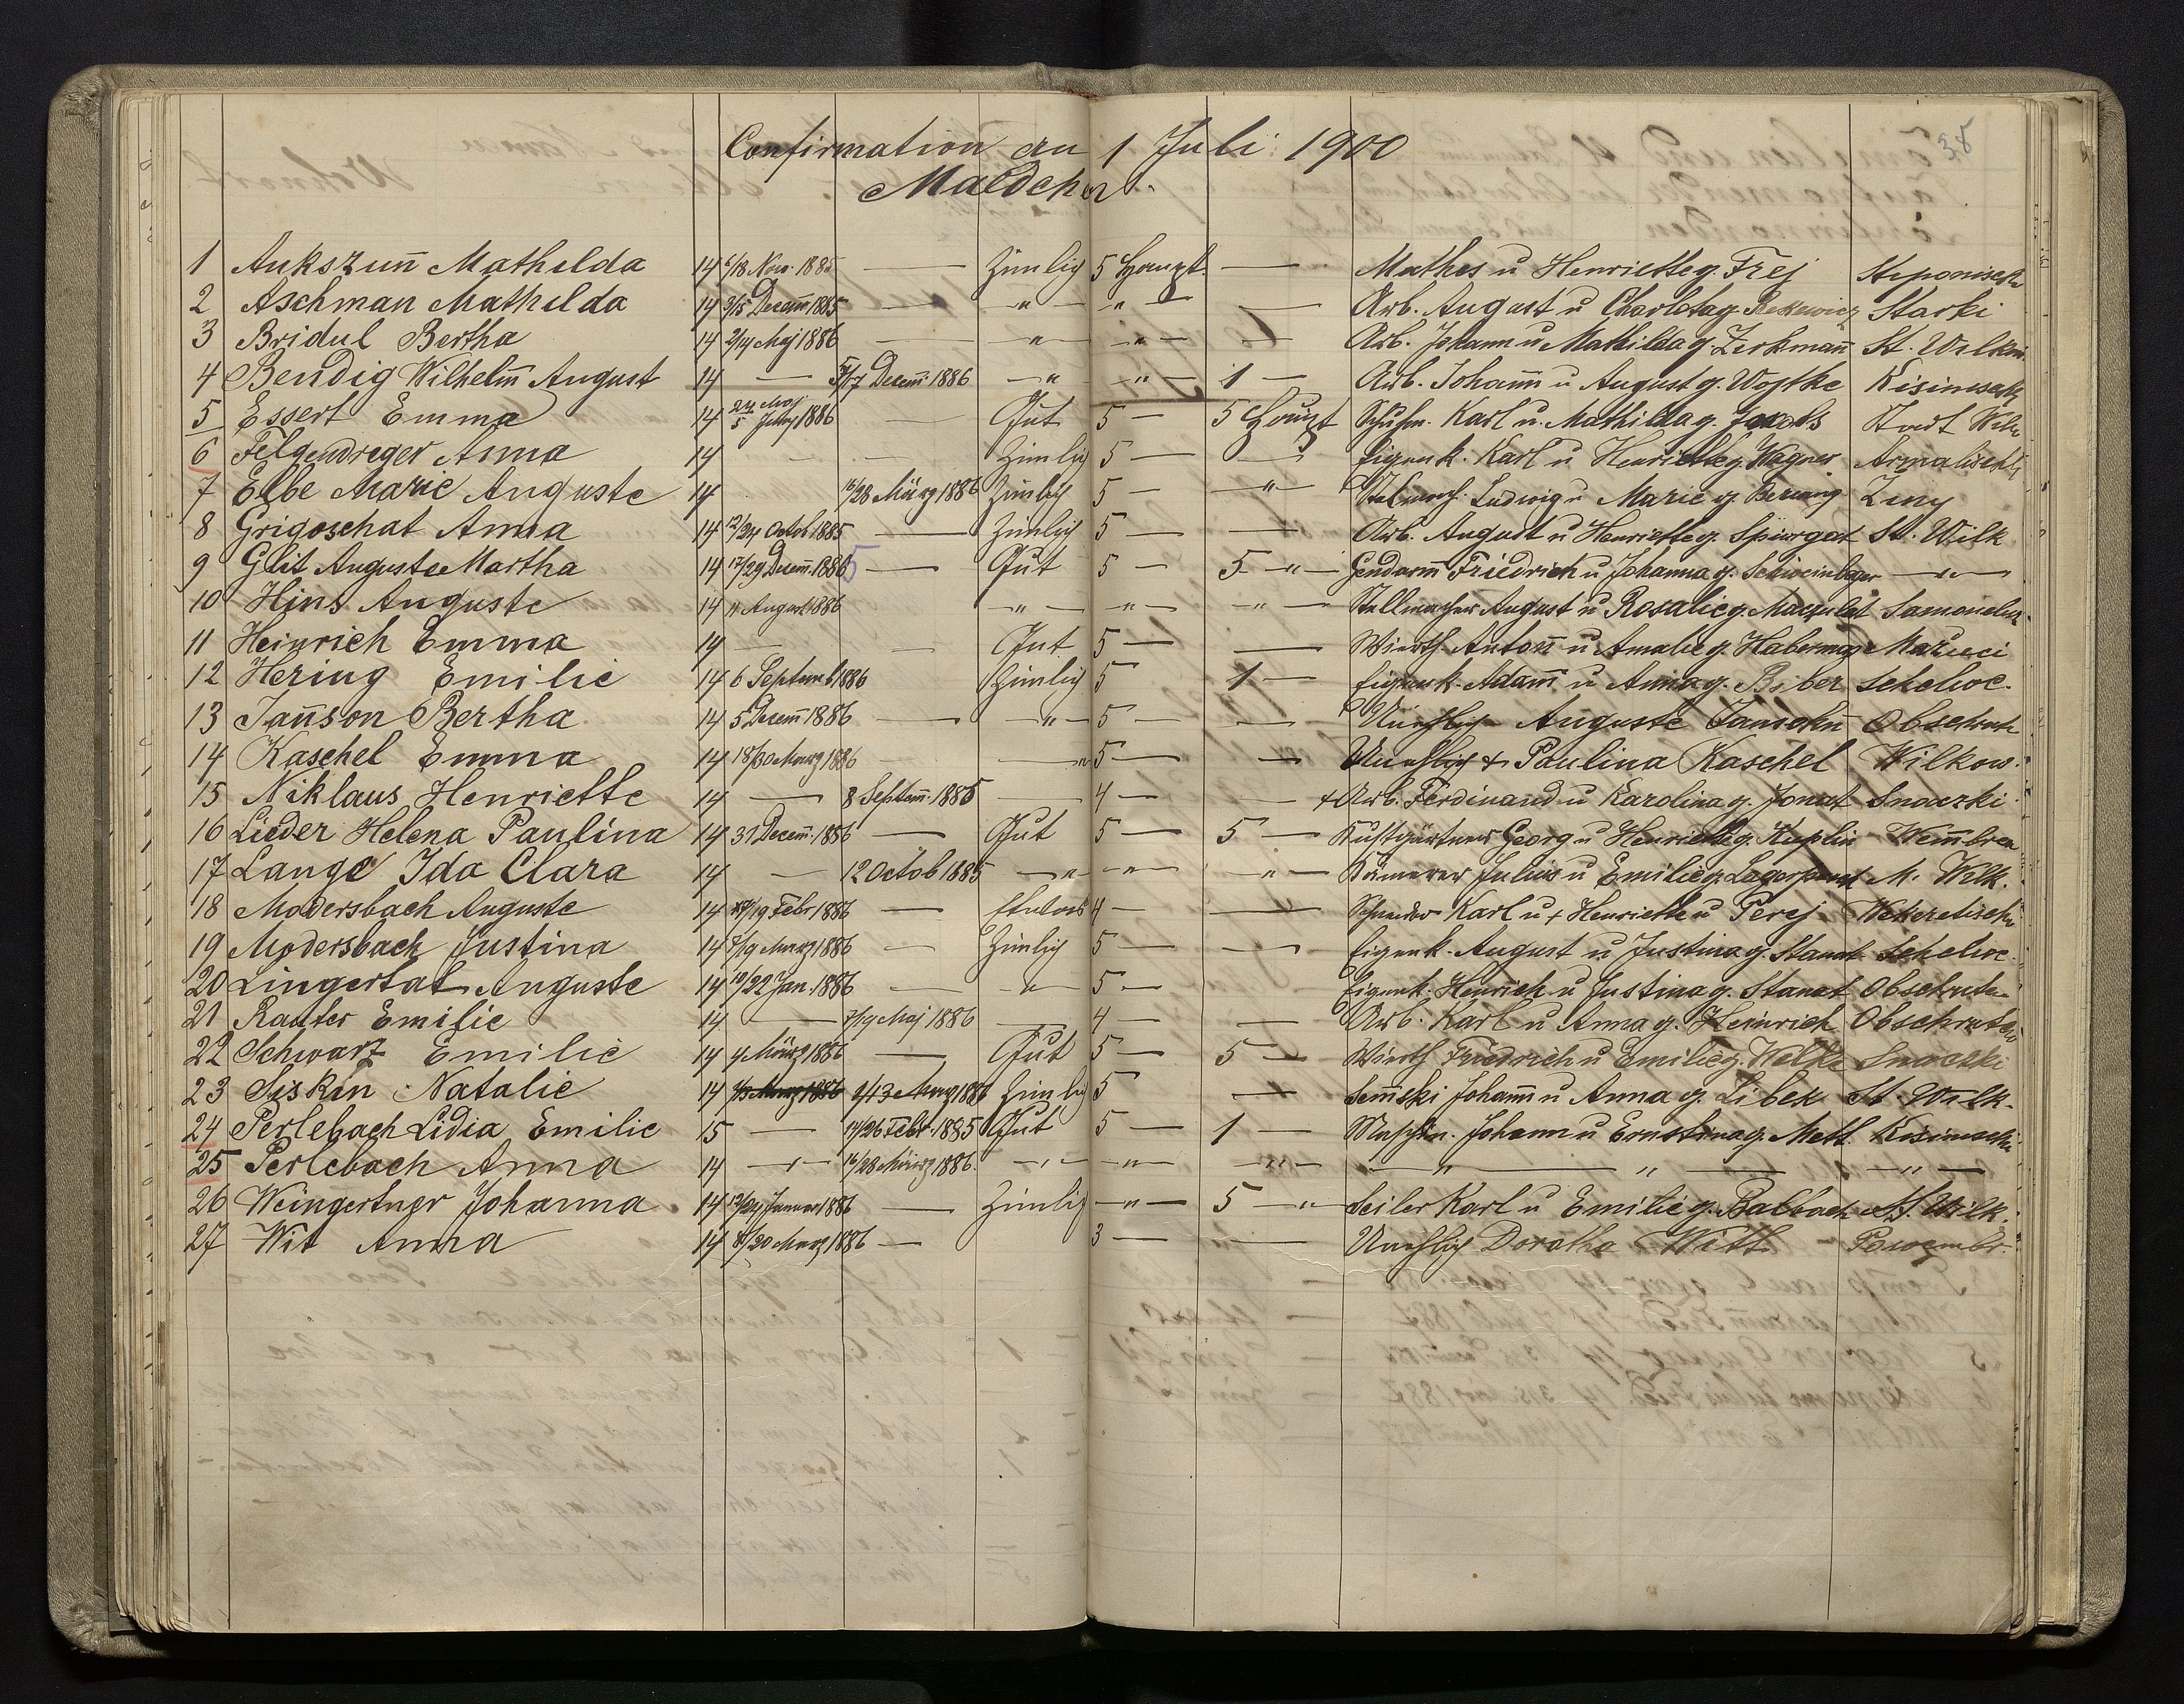 38
Confirmation an 1 Juli 1900
Maedchen
1 Aukszun̄ Mathilda 14 6/18 Nov. 1885 — Zimlig 5 Haupt — Mathes u Henriette g. Frej
2 Aschman Mathilda 14 3/15 Decem̄ 1885 — " — " — — Arb. August u Charlota g. Starki
3 Bridul Bertha 14 2/14 Maj 1886 — " — " — — Arb. Johann u Mathilda g. Zerkman̄ St. Wilkin
4 Bendig Wilhelm̄ August 14 — 5/17 Decem̄ 1886 — " — " — 1 — Arb. Johan̄ u August g. Wojtke
5 Essert Emma 14 24 Maj 5 Juny 1886 — Gut 5 — 5 Haupt Schuhm. Karl u. Mathilda g. Jakobs
6 Felgendreger Anna 14 — — Zimlig 5 — — Eigenk. Karl u Henriette g. Wagner
7 Elbe Marie Auguste 14 16/28 März 1886 Zimlig 5 — " — Ludwig u Marie g. Zeny
8 Grigoschat Anna 14 12/24 Octob 1885 — Zimlig 5 — — Arb. August u Henriette g. Spurgat St. Wilk
9 Glit Auguste Martha 14 17/29 Decem̄ 1886 5 — Gut 5 — 5 — " — Gendarm̄ Friedrich u Johanna g. — " —
10 Hins Auguste 14 11 August 1886 — " — " — " — Stellmacher August u Rosalie g.
11 Heinrich Emma 14 — — Gut 5 — — Wirth Anton̄ u Amalie g. Mazieci
12 Hering Emilie 14 6 Septemb 1886 Zimlig 5 1 — Eigenk. Adam̄ u Anna g. Biber Schelwe.
13 Jan̄son Bertha 14 5 Decem̄ 1886 — " — 5 — — Unehlig Auguste Jansohn̄ Obschrute
14 Kaschel Emma 14 18/30 Marz 1886 — " 5 — — Unehlig + Paulina Kaschel Wilkow.
15 Niklaus Henriette 14 — 8 Septem̄. 1886 — 4 — — + Arb. Ferdinand u Karolina g. Jonat Snaczki
16 Lieder Helena Paulina 14 31 Decem̄. 1886 — Gut 5 — 5 — Georg u Henriette g. Keplin
17 Lange Ida Clara 14 — 12 Octob 1885 — " — " — " — Kämerer Julius u Emilie g. M. Wilk.
18 Modersbach Auguste 14 7/19 Febr 1886 — 4 — — Schneider Karl u + Henriette u Perej
19 Modersbach Justina 14 7/19 Marz 1886 — Zimlig 5 — — Eigenk. August u Justina g. Stanat Schelwe
20 Lingertat Auguste 14 10/22 Jan. 1886 — " — 5 — Eigenk. Henrich u Justina g. Stanat Obschrute
21 Rauter Emilie 14 — 7/19 Maj 1886 — 4 — — Arb. Karl u Anna g. Heinrich Obschrute
22 Schwarz Emilie 14 4 März 1886 — Gut 5 — 5 — Wirth Friedrich u Emilie g. Welke Snaczki
23 Siskin Natalie 14 1/13 Marz 1886 1/13 Marz 1886 Zimlig 5 — Johan̄ u Anna g. Libek St. Wilk.
24 Perlebach Lidia Emilie 15 — 14/26 Febr. 1885 Gut 5 — 1 — Maschin. Johann u Ernstina g. Mett.
25 Perlebach Anna 14 — 16/28 März 1886. — " — " — " — " — " — " —
26 Weingertner Johanna 14 12/24 Januar 1886 — Zimlig — " — 5 — " — Seiler Karl u Emilie g. Balbach St. Wilk.
27 Wit Anna 14 8/20 Marz 1886 — 3 — — Unehlig Dorotha Witt